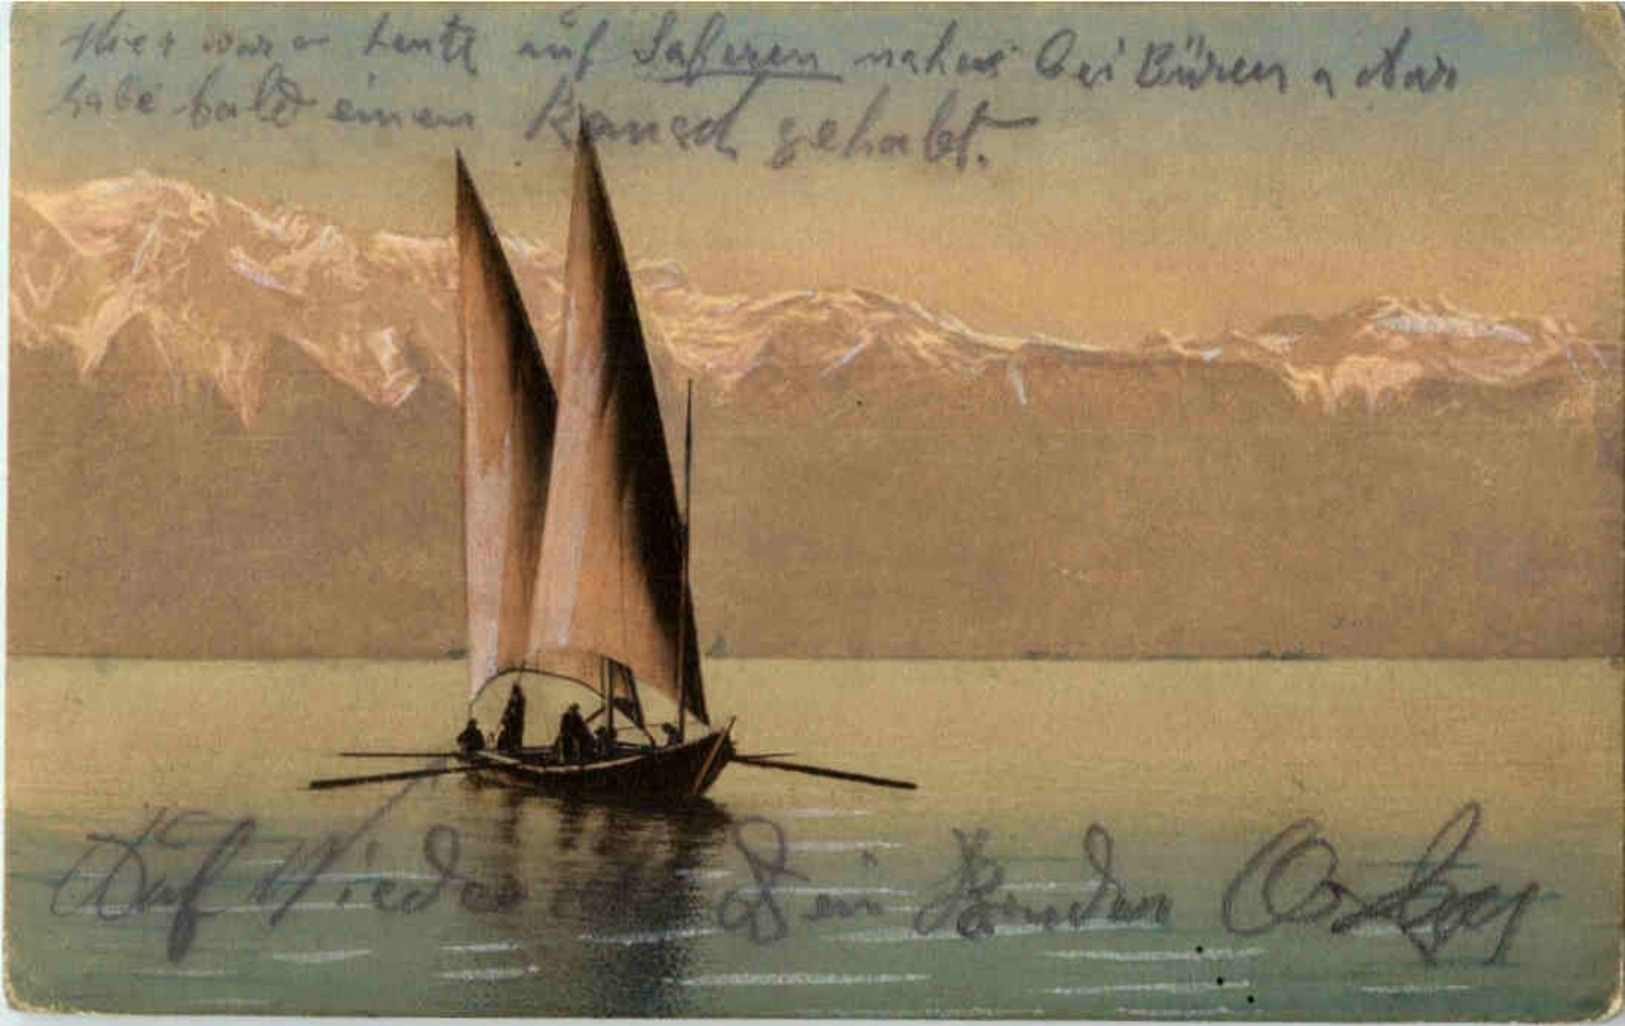 Hier war heute auf Saferen nahe bei Büren a Aare
habe bald einen Rausch gehabt.
Auf Wieder Dein Bruder Oskar